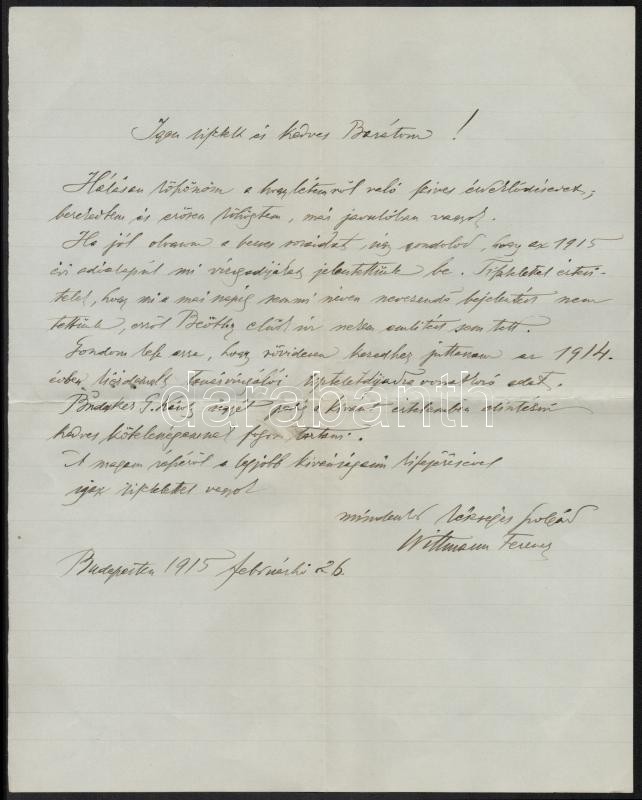 Igen tisztelt és kedves Barátom!
Hálásan köszönöm a hogylétemről való szives érdeklődésedet;
berekedtem és erősen köhögtem, már javulóban vagyok.
Ha jól olvasom a becses soraidat, úgy gondolod, hogy az 1915
évi adialapnál mi vizsgadíjakat jelentettünk be. Tisztelettel értesi-
telek, hogy mi a mai napig semmi néven nevezendő bejelentést nem
tettünk, erről Beöthy elnök úr nekem említést sem tett.
Gondom lesz arra, hogy rövidesen kezedhez juttassam az 1914.
évben tanárvizsgálói tiszteletdíjadra vonatkozó adat.
G. János ügyét pedig a kívánt értelemben elintézni
kedves kötelességemnek fogom tartani.
A magam részéről a legjobb kívánságaim kifejezésével
igaz tisztelettel vagyok
mindenkor készséges szolgád
Wittmann Ferenc
Budapesten 1915 februárhó 26.
darabanth